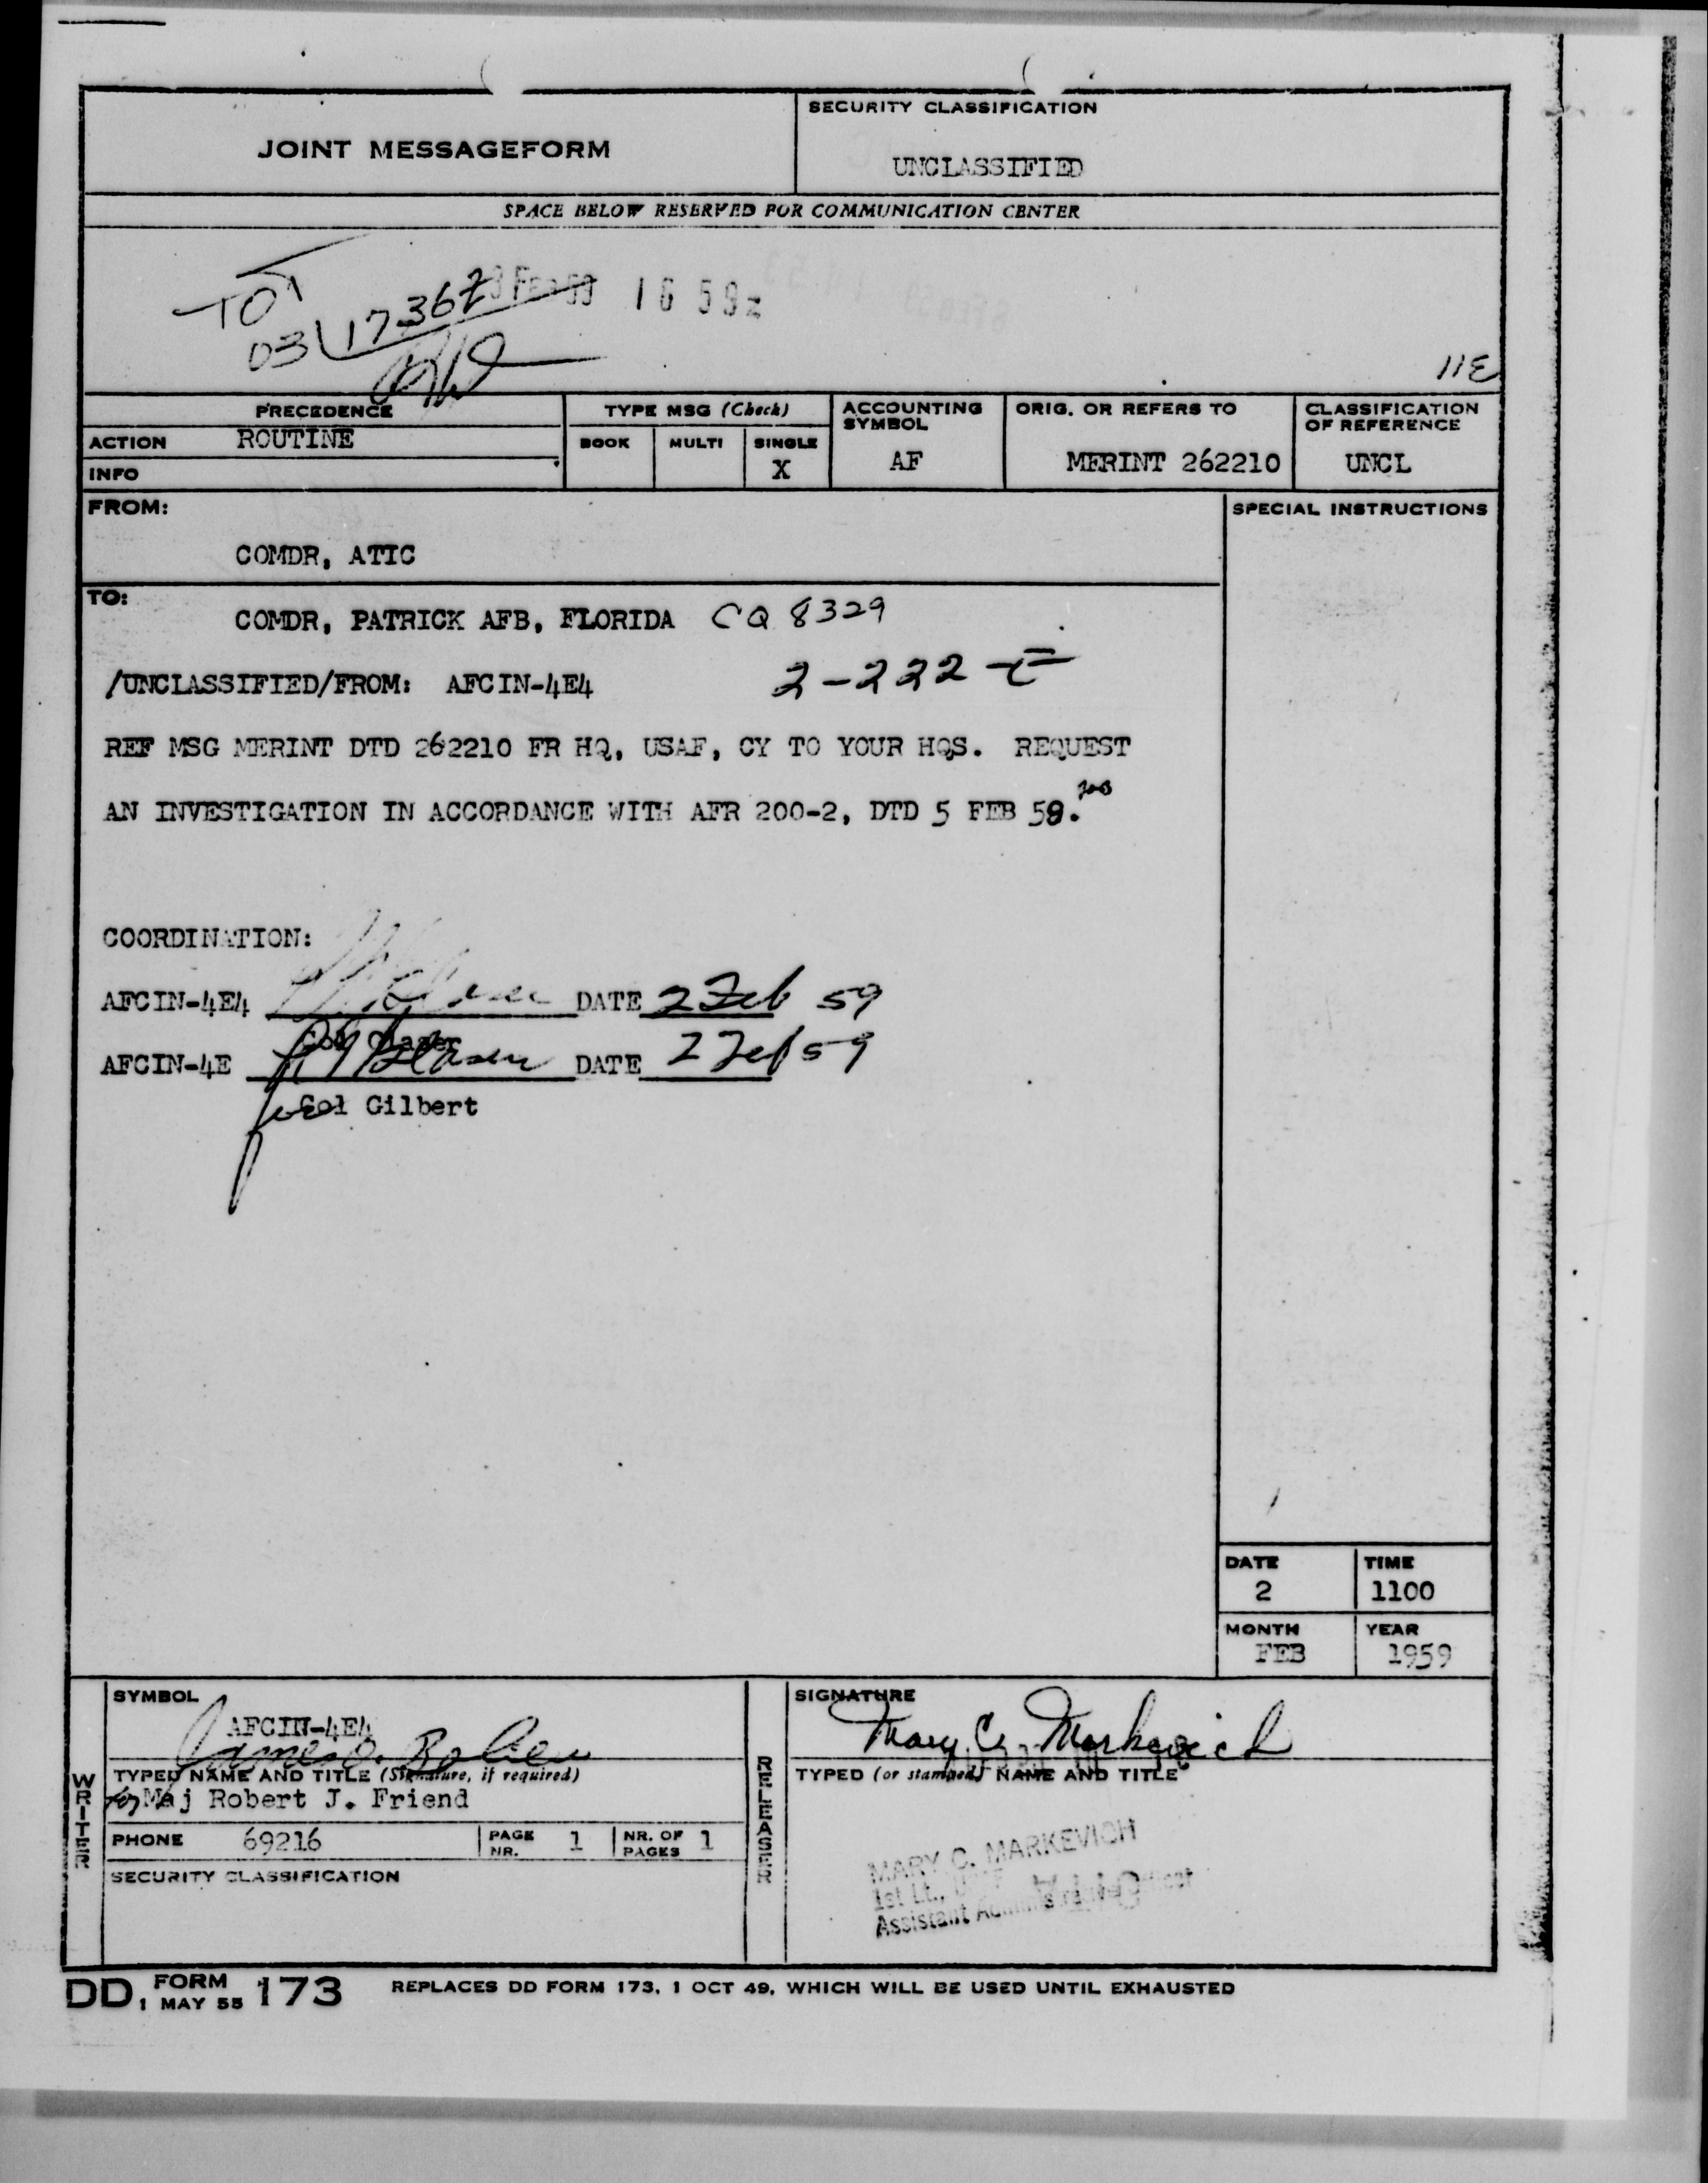 JOINT MESSAGEFORM
SECURITY CLASSIFICATION
UNCLASSIFIED
SPACE BELOW RESERVED FOR COMMUNICATION CENTER
TOT
03/1736Z
1659z
11E
PRECEDENCE
ACTION ROUTINE
INFO
TYPE MSG (Check)
BOOK MULTI SINGLE
X
ACCOUNTING SYMBOL
AF
ORIG. OR REFERS TO
MERINT 262210
CLASSIFICATION OF REFERENCE
UNCL
FROM:
COMDR, ATIC
SPECIAL INSTRUCTIONS
TO:
COMDR, PATRICK AFB, FLORIDA CQ 8329
/UNCLASSIFIED/FROM: AFCIN-4E4 2-222-E
REF MSG MERINT DTD 262210 FR HQ, USAF, CY TO YOUR HQS. REQUEST
AN INVESTIGATION IN ACCORDANCE WITH AFR 200-2, DTD 5 FEB 58.
COORDINATION:
AFCIN-4E4 DATE 2 Feb 59
Col Glaser
AFCIN-4E DATE 2 Feb 59
for Col Gilbert
DATE
2
TIME
1100
MONTH
FEB
YEAR
1959
WRITER
SYMBOL
AFCIN-4E4
TYPED NAME AND TITLE (Signature, if required)
for Maj Robert J. Friend
PHONE 69216
PAGE NR. 1
NR. OF PAGES 1
SECURITY CLASSIFICATION
RELEASER
SIGNATURE
Mary C. Markevich
TYPED (or stamped) NAME AND TITLE
MARY C. MARKEVICH
1st Lt.,
Assistant
DD FORM 173
1 MAY 55
REPLACES DD FORM 173, 1 OCT 49, WHICH WILL BE USED UNTIL EXHAUSTED